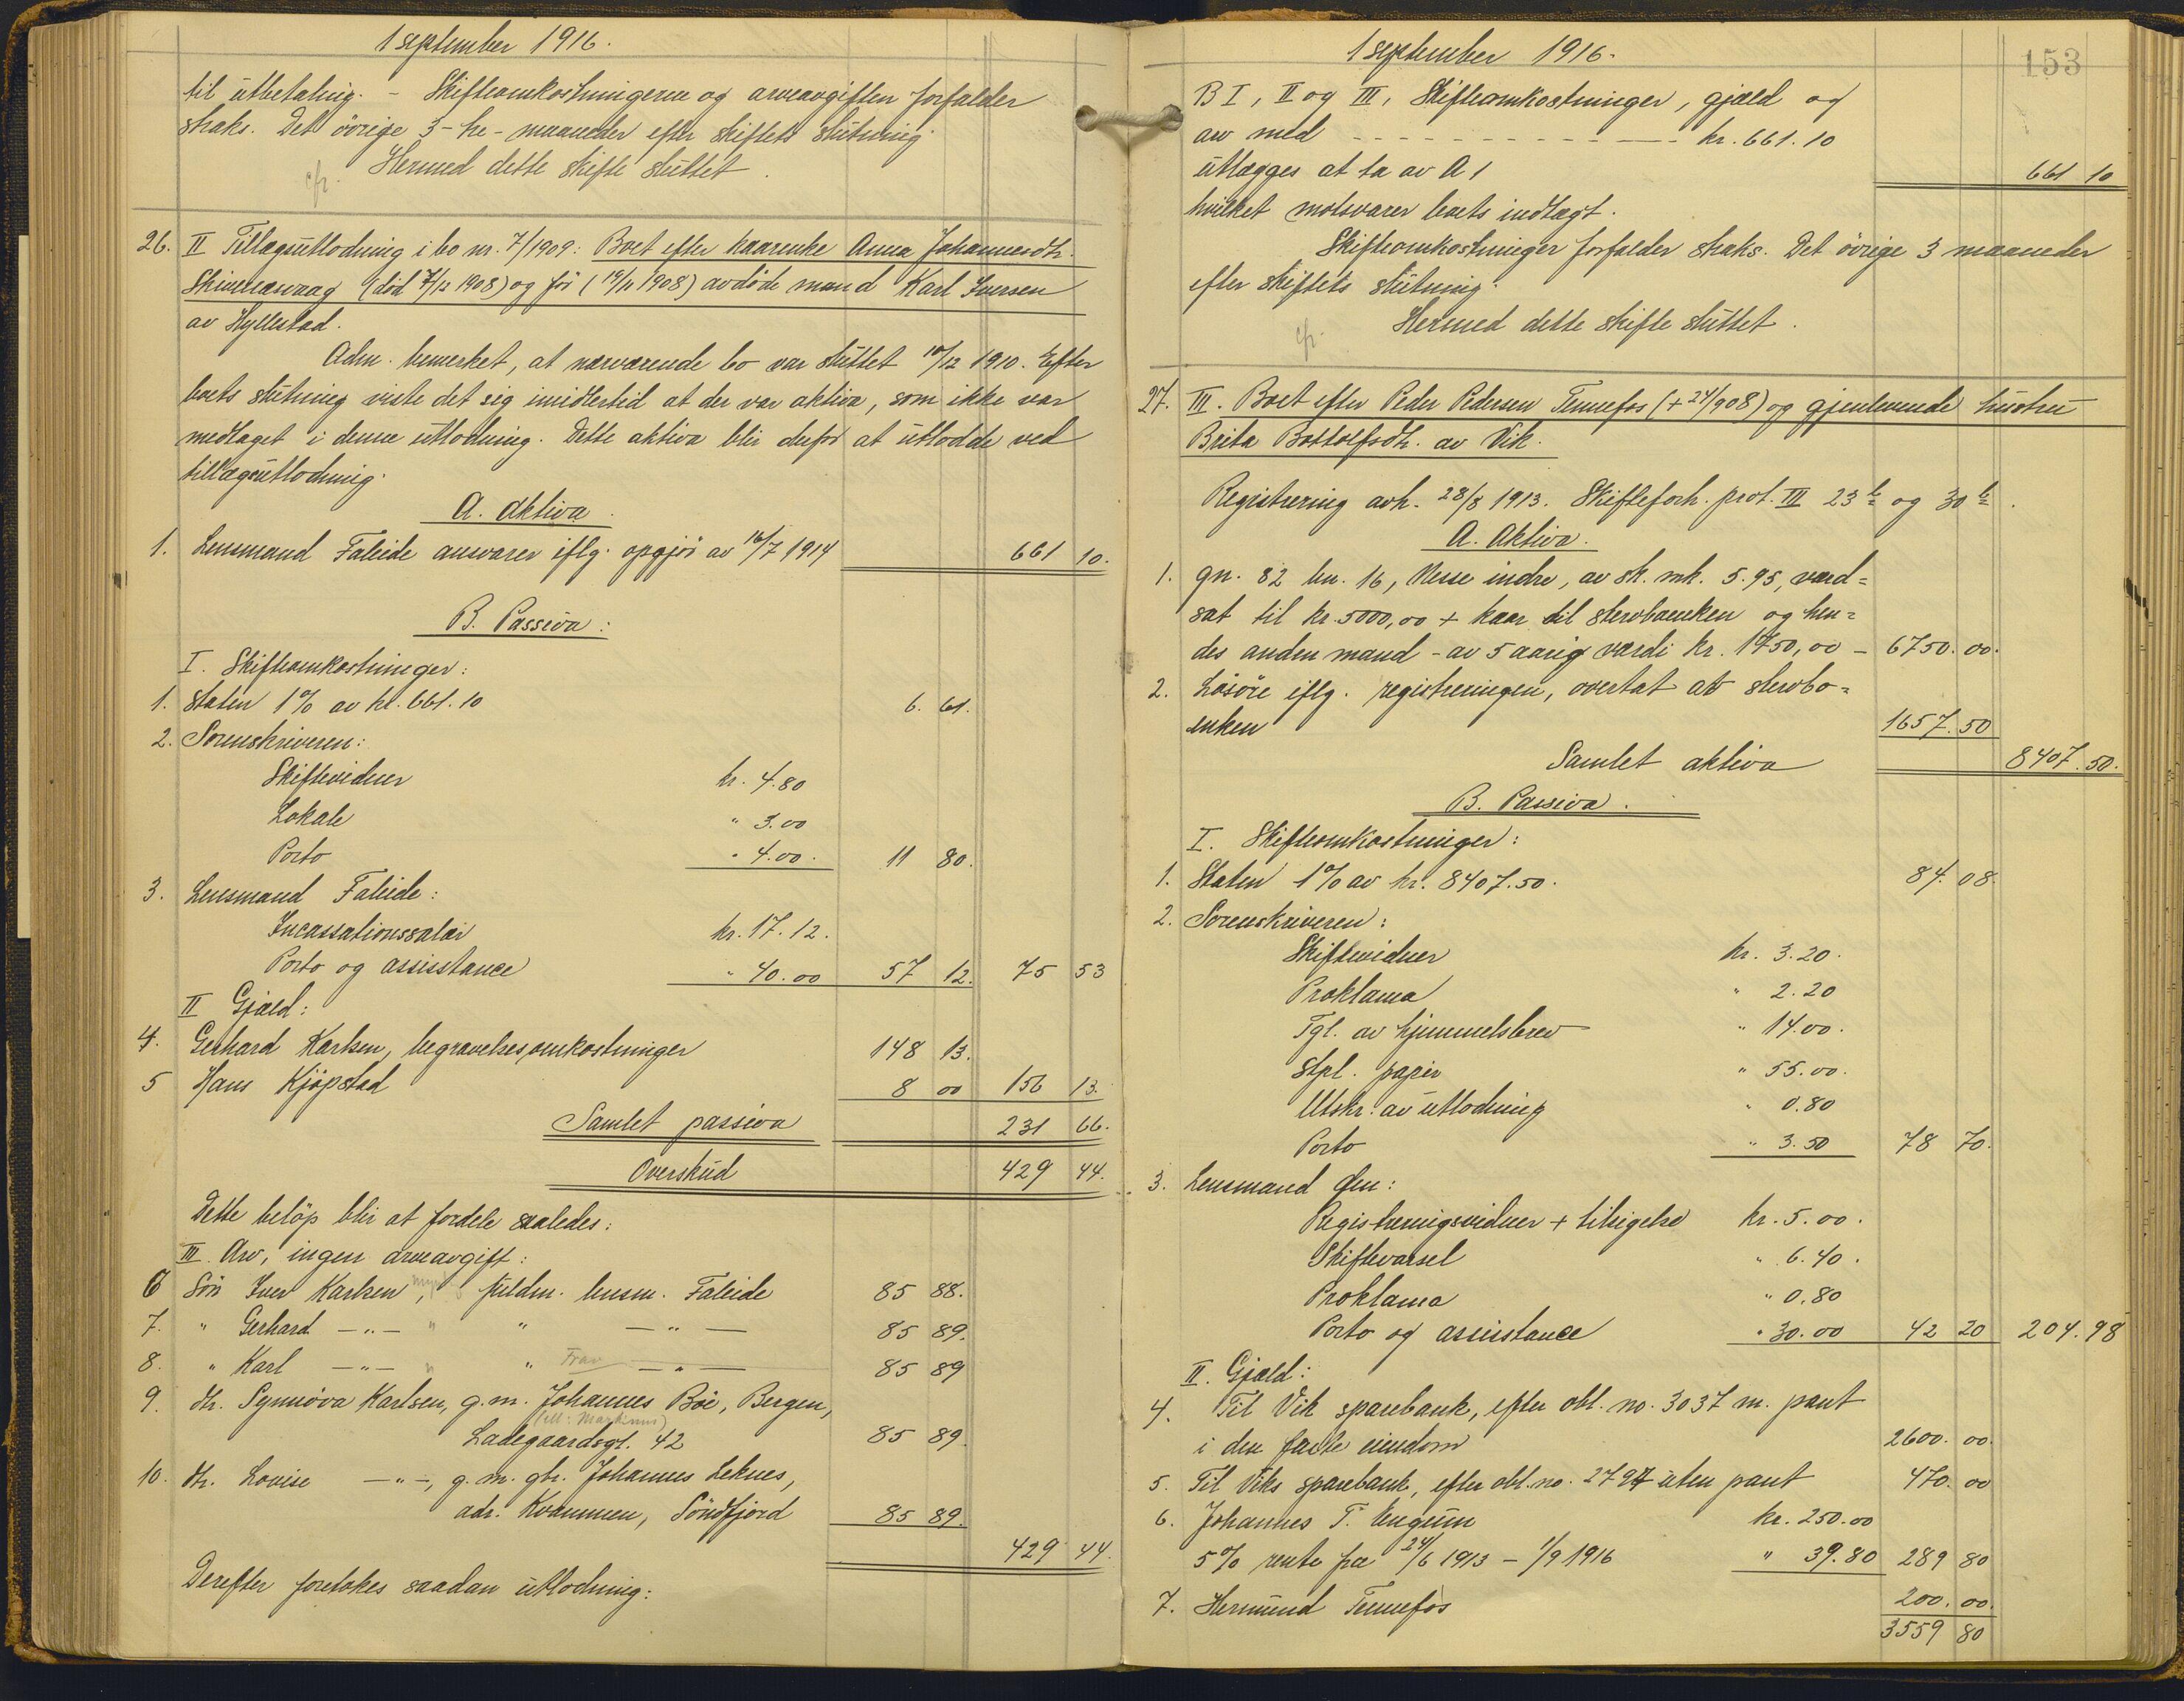 1 september 1916.
til utbetaling. - Skifteomkostningerne og arveavgiften forfalder
straks. Det övrige 3 - tre - maaneder efter skiftets slutning.
Hermed dette skifte sluttet.
cfr.
26. II Tillægsutlodning i bo nr. 7/1909: Boet efter kaarenke Anna Johannesdtr.
(död 7/12 1908) og för (19/11 1908) avdöde mand Karl Iversen
av Hyllestad.
Adm. bemerket, at nærværende bo var sluttet 10/12 1910. Efter
boets slutning viste det sig imidlertid at der var aktiva, som ikke var
medtaget i denne utlodning. Dette aktiva blir derfor at utlodde ved
tillægsutlodning.
A. Aktiva.
1. Lensmand Faleide ansvarer iflg. opgjör av 16/7 1914 661 10.
B. Passiva:
I. Skifteomkostninger:
1. Staten 1% av kr. 661.10 6. 61.
2. Sorenskriveren:
Skiftevidner kr. 4.80
Lokale " 3.00
Porto " 4.00. 11 80.
3. Lensmand Faleide:
Incassationssalær kr. 17.12.
Porto og assisstance " 40.00 57 12. 75 53
II Gjæld:
4. Gerhard Karlsen, begravelsesomkostninger 148 13.
5 Hans Kjöpstad 8 00 156 13.
Samlet passiva 231 66.
Overskud 429 44.
Dette belöp blir at fordele saaledes:
III. Arv, ingen arveavgift:
6 Sön Iver Karlsen, fuldm. lensm. Faleide 85 88.
7. " Gerhard -"- " " -"- 85 89.
8. " Karl -"- " " Frav -"- 85 89
9. dtr. Synnöva Karlsen, g.m. Johannes Böe, Bergen,
(ell: Martinus)
Ladegaardsgt. 42 85 89.
10. dtr. Lovise -"-, g.m. gbr. Johannes Leknes,
adr. Kvammen, Söndfjord 85 89.
429 44.
Derefter foretokes saadan utlodning:
1 september 1916.
153
B I, II og III, Skifteomkostninger, gjæld og
arv med - - - - - - - - - - kr. 661.10
utlægges at ta av A 1 661 10
hvilket motsvarer boets indtægt.
Skifteomkostninger forfalder straks. Det övrige 3 maaneder
efter skiftets slutning.
Hermed dette skifte sluttet.
cfr.
27. III. Boet efter Peder Pedersen Tennefos (+ 24/908) og gjenlevende hustru
Brita Bottolfsdtr. av Vik.
Registrering avh. 28/8 1913. Skifteforh. prot. III 23 b og 30 b.
A. Aktiva.
1. gn. 82 bn. 16, Nesse indre, av sk. mk. 5.95, værd=
sat til kr. 5000,00 + kaar til stervboenken og hen=
des anden mand - av 5 aarig værdi kr. 1750,00 - 6750.00.
2. Lösöre iflg. registreringen, overtat av stervbo=
enken 1657.50
Samlet aktiva 8407.50.
B. Passiva.
I. Skifteomkostninger:
1. Staten 1% av kr. 8407.50. 84.08.
2. Sorenskriveren:
Skiftevidner kr. 3.20.
Proklama " 2.20
Tgl. av hjemmelsbrev " 14.00.
Stpl. papir " 55.00.
Utskr. av utlodning " 0.80
Porto " 3.50 78 70.
3. Lensmand Öen:
Registreringsvidner + tilsigelse kr. 5.00.
Skiftevarsel " 6.40.
Proklama " 0.80
Porto og assisstance " 30.00 42 20 204.98
II. Gjæld:
4. Til Vik sparebank, efter obl. no. 3037 m. pant
i den faste eiendom 2600.00.
5. Til Viks sparebank, efter obl. no. 2797 uten pant 470.00
6. Johannes T. Engum kr. 250.00
5% rente fra 24/6 1913 - 1/9 1916 " 39.80 289 80
7. Hermund Tennefos 200.00.
3559 80